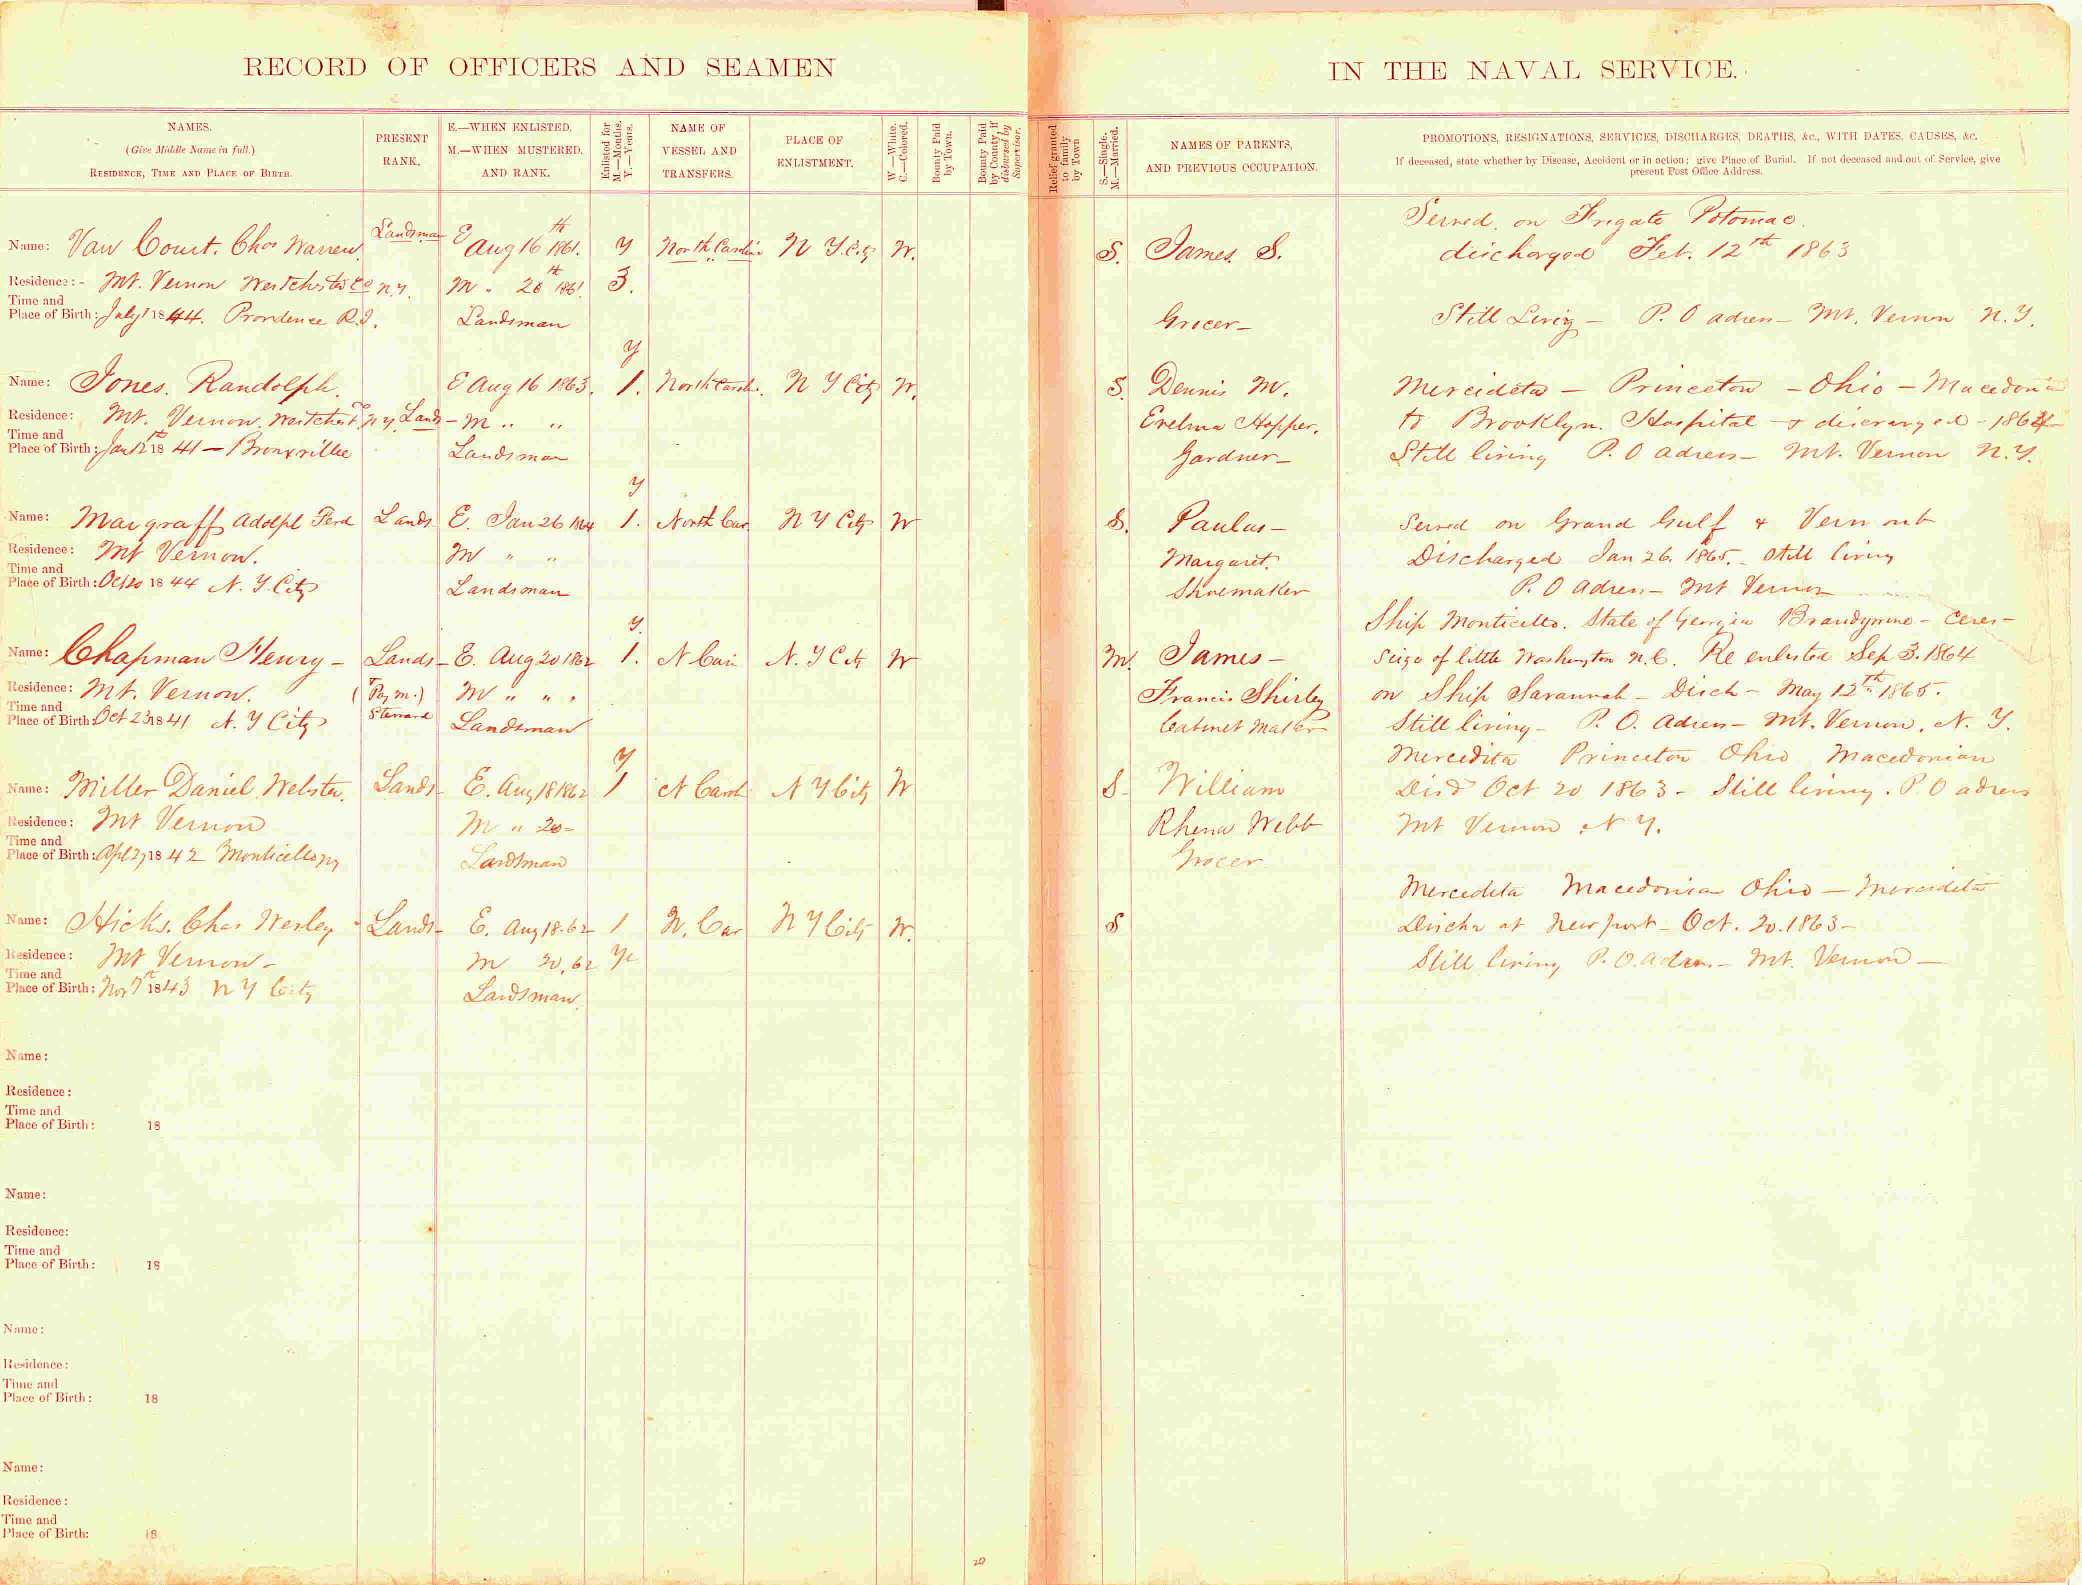 RECORD OF OFFICERS AND SEAMEN IN THE NAVAL SERVICE.
NAMES.
(Give Middle Name in full.)
RESIDENCE, TIME AND PLACE OF BIRTH.
PRESENT
RANK.
E.—WHEN ENLISTED.
M.—WHEN MUSTERED.
AND RANK.
Enlisted for
M.—Months.
Y.—Years.
NAME OF
VESSEL AND
TRANSFERS.
PLACE OF
ENLISTMENT.
W.—White.
C.—Colored.
Bounty Paid
by Town.
Bounty Paid
by County, if
disbursed by
Supervisor.
Relief granted
to family
by Town
S.—Single.
M.—Married.
NAMES OF PARENTS,
AND PREVIOUS OCCUPATION.
PROMOTIONS, RESIGNATIONS, SERVICES, DISCHARGES, DEATHS, &c., WITH DATES, CAUSES, &c.
If deceased, state whether by Disease, Accident or in action; give Place of Burial. If not deceased and out of Service, give
present Post Office Address.
Served on Frigate Potomac
Name: Van Court. Chas Warren Landsman E Aug 16th 1861. Y North Carolin N Y. City W. S. James S. discharged Feb. 12th 1863
Residence: Mt. Vernon Westchester Co N.Y. M " 20th 1861 3.
Time and
Place of Birth: July 1 1844. Providence R.I. Landsman Grocer Still Living — P. O adress — Mt. Vernon N.Y.
Y
Name: Jones. Randolph. E Aug 16 1863. 1. North Carol. N Y City W. S. Dennis W. Mercideta — Princeton — Ohio — Macedonia
Residence: Mt. Vernon. Westchest Co N.Y. Lands — M " " Evelina Hopper. to Brooklyn. Hospital & discharged — 1864
Time and
Place of Birth: Jan 12th 1841 — Bronxville Landsman Gardner — Still living P. O adress — Mt. Vernon N.Y.
Y
Name: Margraff Adolph Ferd Lands E. Jan 26 1864 1. North Car N Y City W S. Paulus — Served on Grand Gulf & Vermont
Residence: Mt Vernon. M " " Margaret. Discharged Jan 26. 1865. Still living
Time and
Place of Birth: Oct 20 1844 N. Y. City Landsman Shoemaker P. O adress — Mt Vernon
Y. Ship Monticello. State of Georgia Brandywine — Ceres —
Name: Chapman Henry — Lands — E. Aug 20 1862 1. N Car N. Y City W M. James — Seige of little Washington N.C. Re enlisted Sep 3. 1864
Residence: Mt. Vernon. (Pay m.) M " " " Francis Shirley on Ship Savannah — Disch — May 12th 1865.
Time and
Place of Birth: Oct 23 1841 N. Y City Steward Landsman Cabinet Maker Still living — P. O. adress — Mt. Vernon. N. Y.
Y Mercedita Princeton Ohio Macedonian
Name: Miller Daniel Webster. Lands E. Aug 18 1862 1 N Carol N Y City W S — William Disd Oct 20 1863 — Still living. P. O adress
Residence: Mt Vernon M " 20 — Rhena Webb Mt Vernon N.Y.
Time and
Place of Birth: Apl 27 1842 Monticello NY Landsman Grocer
Mercedita Macedonian Ohio — Mercedita
Name: Hicks. Chas Wesley Lands — E. Aug 18. 62 1 N. Car N Y City W. S Discha at Newport — Oct. 20. 1863 —
Residence: Mt Vernon — M 20, 62 Ye Still living P. O. adress — Mt. Vernon —
Time and
Place of Birth: Nov 7th 1843 N Y City Landsman
Name:
Residence:
Time and
Place of Birth: 18
Name:
Residence:
Time and
Place of Birth: 18
Name:
Residence:
Time and
Place of Birth: 18
Name:
Residence:
Time and
Place of Birth: 18
20